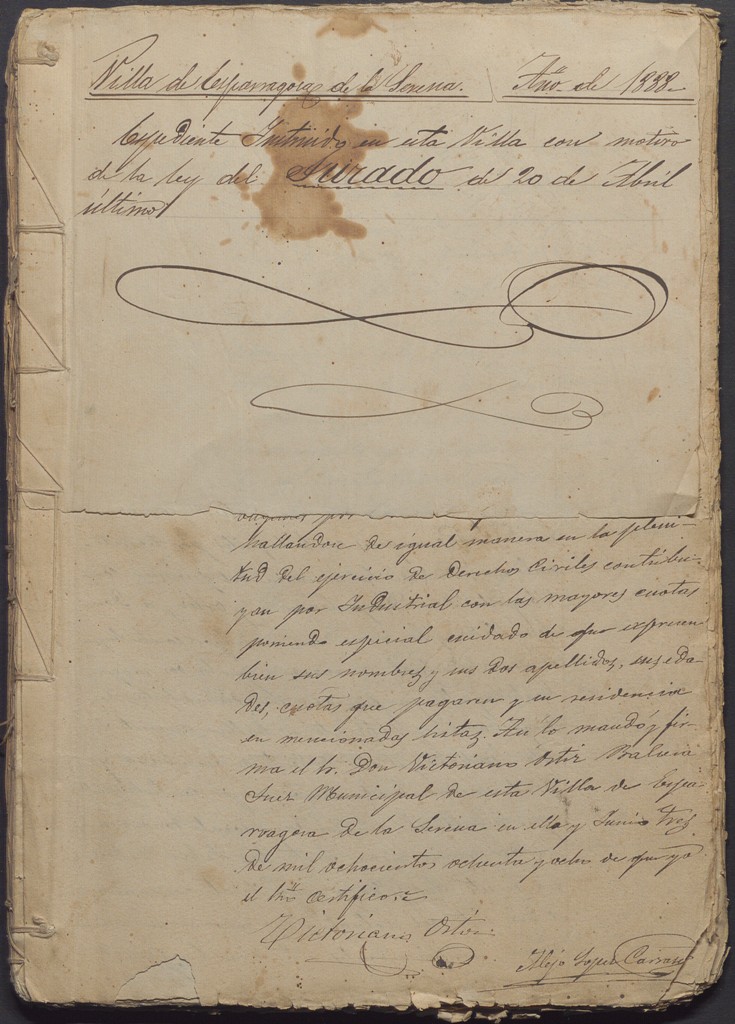 Villa de Esparragosa de la Serena. Año de 1888
Expediente Instruido en esta Villa con motivo
de la ley del Jurado de 20 de Abril
último
hallandose de igual manera en la pleni-
tud del ejercicio de Derechos Civiles contribu-
yan por Industrial con las mayores cuotas
poniendo especial cuidado de que expresen
bien sus nombres y sus dos apellidos, sus eda-
des, cuotas que pagaren y su residencia
en mencionadas listas. Asi lo mandó y fir-
ma el Sr. Don Victoriano Ortiz
Juez Municipal de esta Villa de Espa-
rragosa de la Serena en ella y Junio tres
de mil ochocientos ochenta y ocho de que yo
el Srio certifico.
Victoriano Ortiz
Alejo Lopez Carrasco